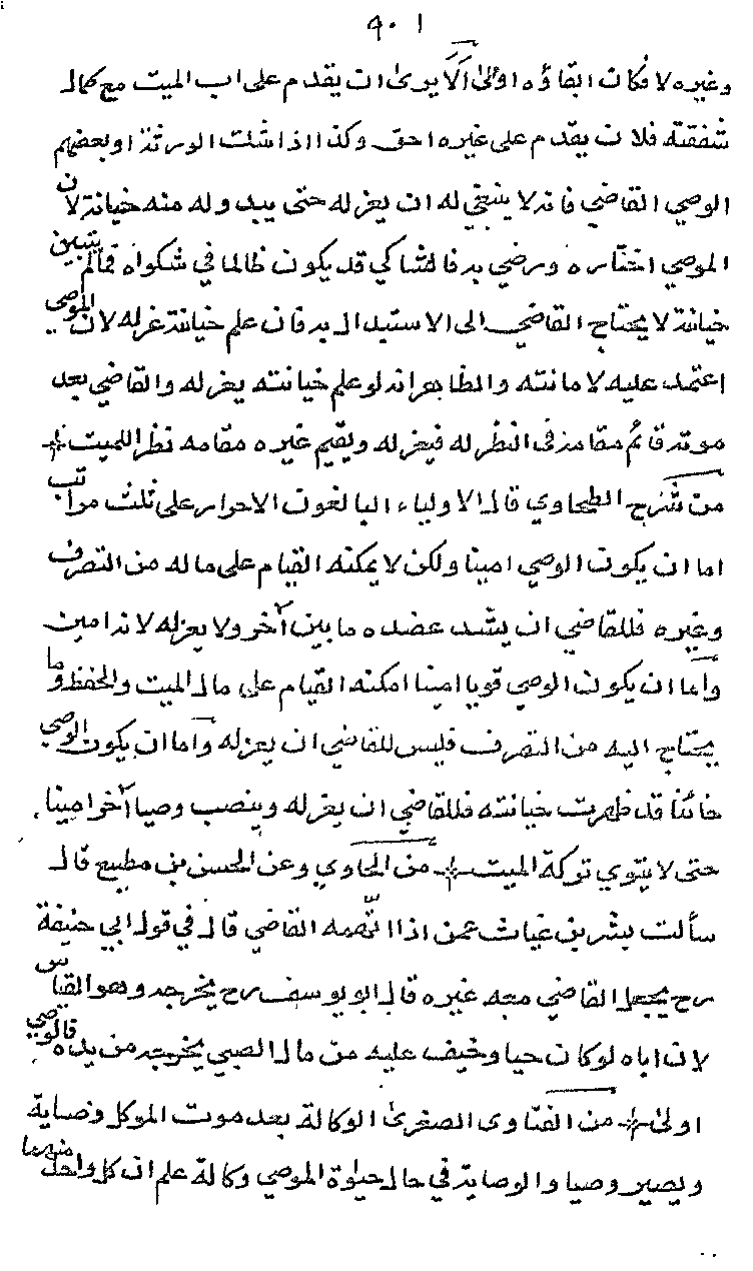 ٩٠١
وغيره لا فكان ابقاؤه اولى الا يرى ان يقدم على اب الميت مع كمال
شفقته فلان يقدم على غيره احق وكذا اذا شكت الورثة او بعضهم
الوصي القاضي فانه لا ينبغي له ان يعزله حتى يبدو له منه خيانة لان
الموصي اختاره ورضي به فالشاكي قد يكون ظالما في شكواه فمالم يتبين
خيانة لا يحتاج القاضي الى الاستبدال به فان علم خيانة عزله لان الموصي
اعتمد عليه لامانته والظاهر انه لو علم خيانته يعزله والقاضي بعد
موته قائم مقامه في النظر له فيعزله ويقيم غيره مقامه نظرا للميت
من شرح الطحاوي قال الاولياء البالغون الاحرار على ثلث مراتب
اما ان يكون الوصي امينا ولكن لا يمكنه القيام على ماله من التصرف
وغيره فللقاضي ان يشد عضده مابين آخر ولا يعزله لانه امين
واما ان يكون الوصي قويا امينا امكنه القيام على مال الميت والحفظ وما
يحتاج اليه من التصرف فليس للقاضي ان يعزله واما ان يكون الوصي
خائنا قد ظهرت خيانته فللقاضي ان يعزله وينصب وصيا آخر امينا
حتى لا يتوي تركة الميت من الحاوي وعن الحسن بن مطيع قال
سألت بشر بن غياث عمن اذا اتهمه القاضي قال في قول ابي حنيفة
رح يجعل القاضي معه غيره قال ابو يوسف رح يخرجه وهو القياس
لان اباه لو كان حيا وخيف عليه من مال الصبي يخرجه من يده فالوصي
اولى من الفتاوى الصغرى الوكالة بعد موت الموكل وصاية
ويصير وصيا والوصاية في حال حيوة الموصي وكالة علم ان كل واحد منهما